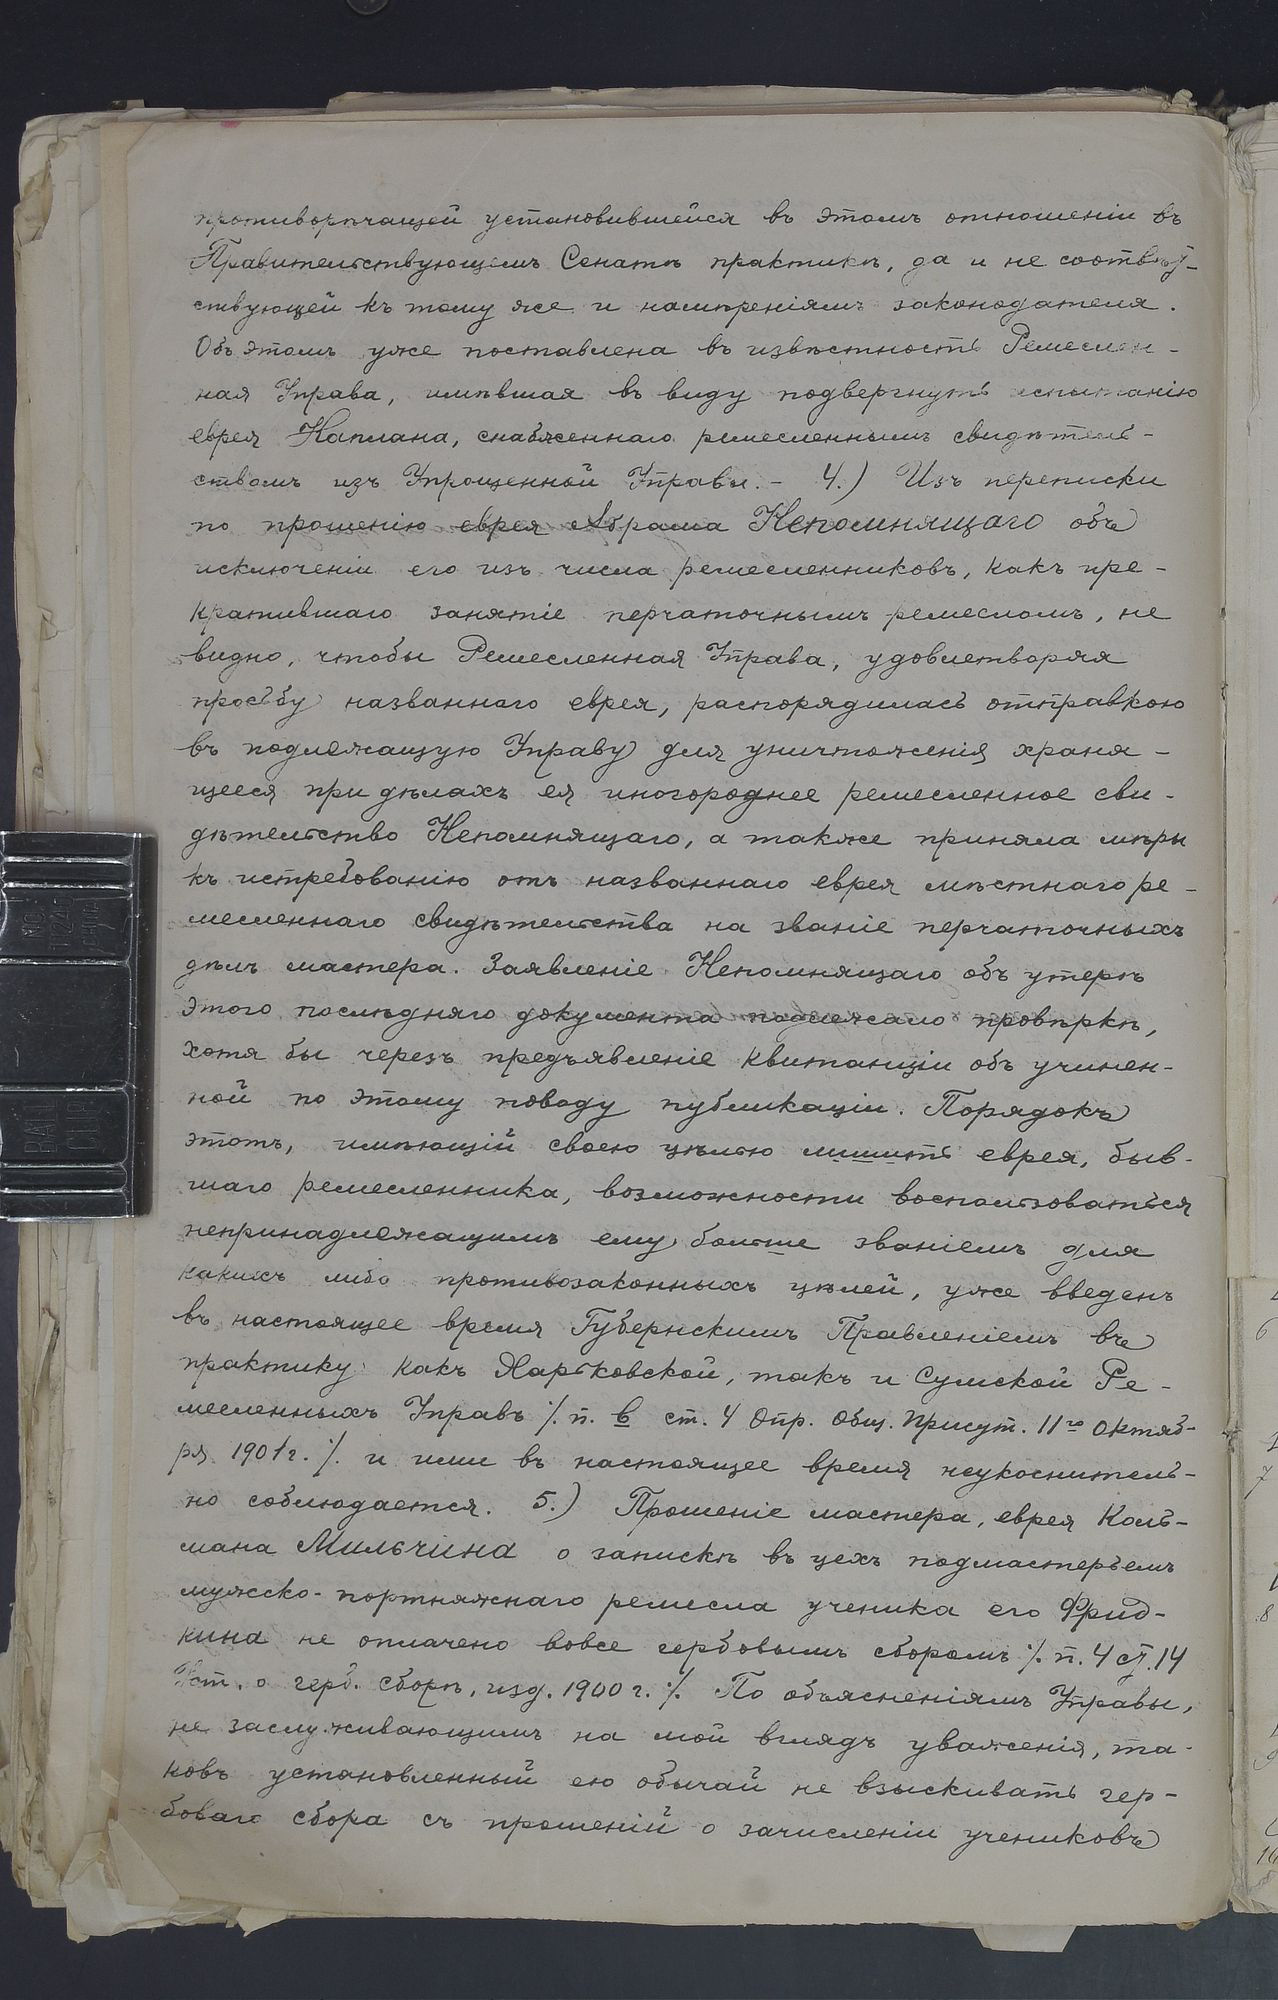 противорѣчащей установившейся въ этомъ отношеніи въ
Правительствующемъ Сенатѣ практикѣ, да и не соотвѣт-
ствующей къ тому же и намѣреніямъ законодателя.
Объ этомъ уже поставлена въ извѣстность Ремеслен-
ная Управа, имѣвшая въ виду подвергнуть испытанію
еврея Каплана, снабженнаго ремесленнымъ свидѣтель-
ствомъ изъ Упрощенной Управы. - 4.) Изъ переписки
по прошенію еврея Абрама Непомнящаго объ
исключеніи его изъ числа ремесленниковъ, какъ пре-
кратившаго занятіе перчаточнымъ ремесломъ, не
видно, чтобы Ремесленная Управа, удовлетворяя
просьбу названнаго еврея, распорядилась отправкою
въ подлежащую Управу для уничтоженія храня-
щееся при дѣлахъ ея иногороднее ремесленное сви-
дѣтельство Непомнящаго, а также приняла мѣры
къ истребованію отъ названнаго еврея мѣстнаго ре-
месленнаго свидѣтельства на званіе перчаточныхъ
дѣлъ мастера. Заявленіе Непомнящаго объ утерѣ
этого послѣдняго документа подлежало провѣркѣ,
хотя бы черезъ предъявленіе квитанціи объ учинен-
ной по этому поводу публикаціи. Порядокъ
этотъ, имѣющій своею цѣлью лишить еврея, быв-
шаго ремесленника, возможности воспользоваться
непринадлежащимъ ему больше званіемъ для
какихъ либо противозаконныхъ цѣлей, уже введенъ
въ настоящее время Губернскимъ Правленіемъ въ
практику какъ Харьковской, такъ и Сумской Ре-
месленныхъ Управъ ٪ п. в ст. 4 Опр. Общ. Присут. 11го Октяб-
ря 1901 г. ٪ и ими въ настоящее время неукоснитель-
но соблюдается. 5.) Прошеніе мастера, еврея Коль-
мана Мильчина о запискѣ въ цехъ подмастерьемъ
мужско-портняжнаго ремесла ученика его Фрид-
кина не оплачено вовсе гербовымъ сборомъ ٪ п. 4 ст. 14
Уст. о герб. сборѣ, изд. 1900 г. ٪ По объясненіямъ Управы,
не заслуживающимъ на мой взглядъ уваженія, та-
ковъ установленный ею обычай не взыскивать гер-
боваго сбора съ прошеній о зачисленіи учениковъ